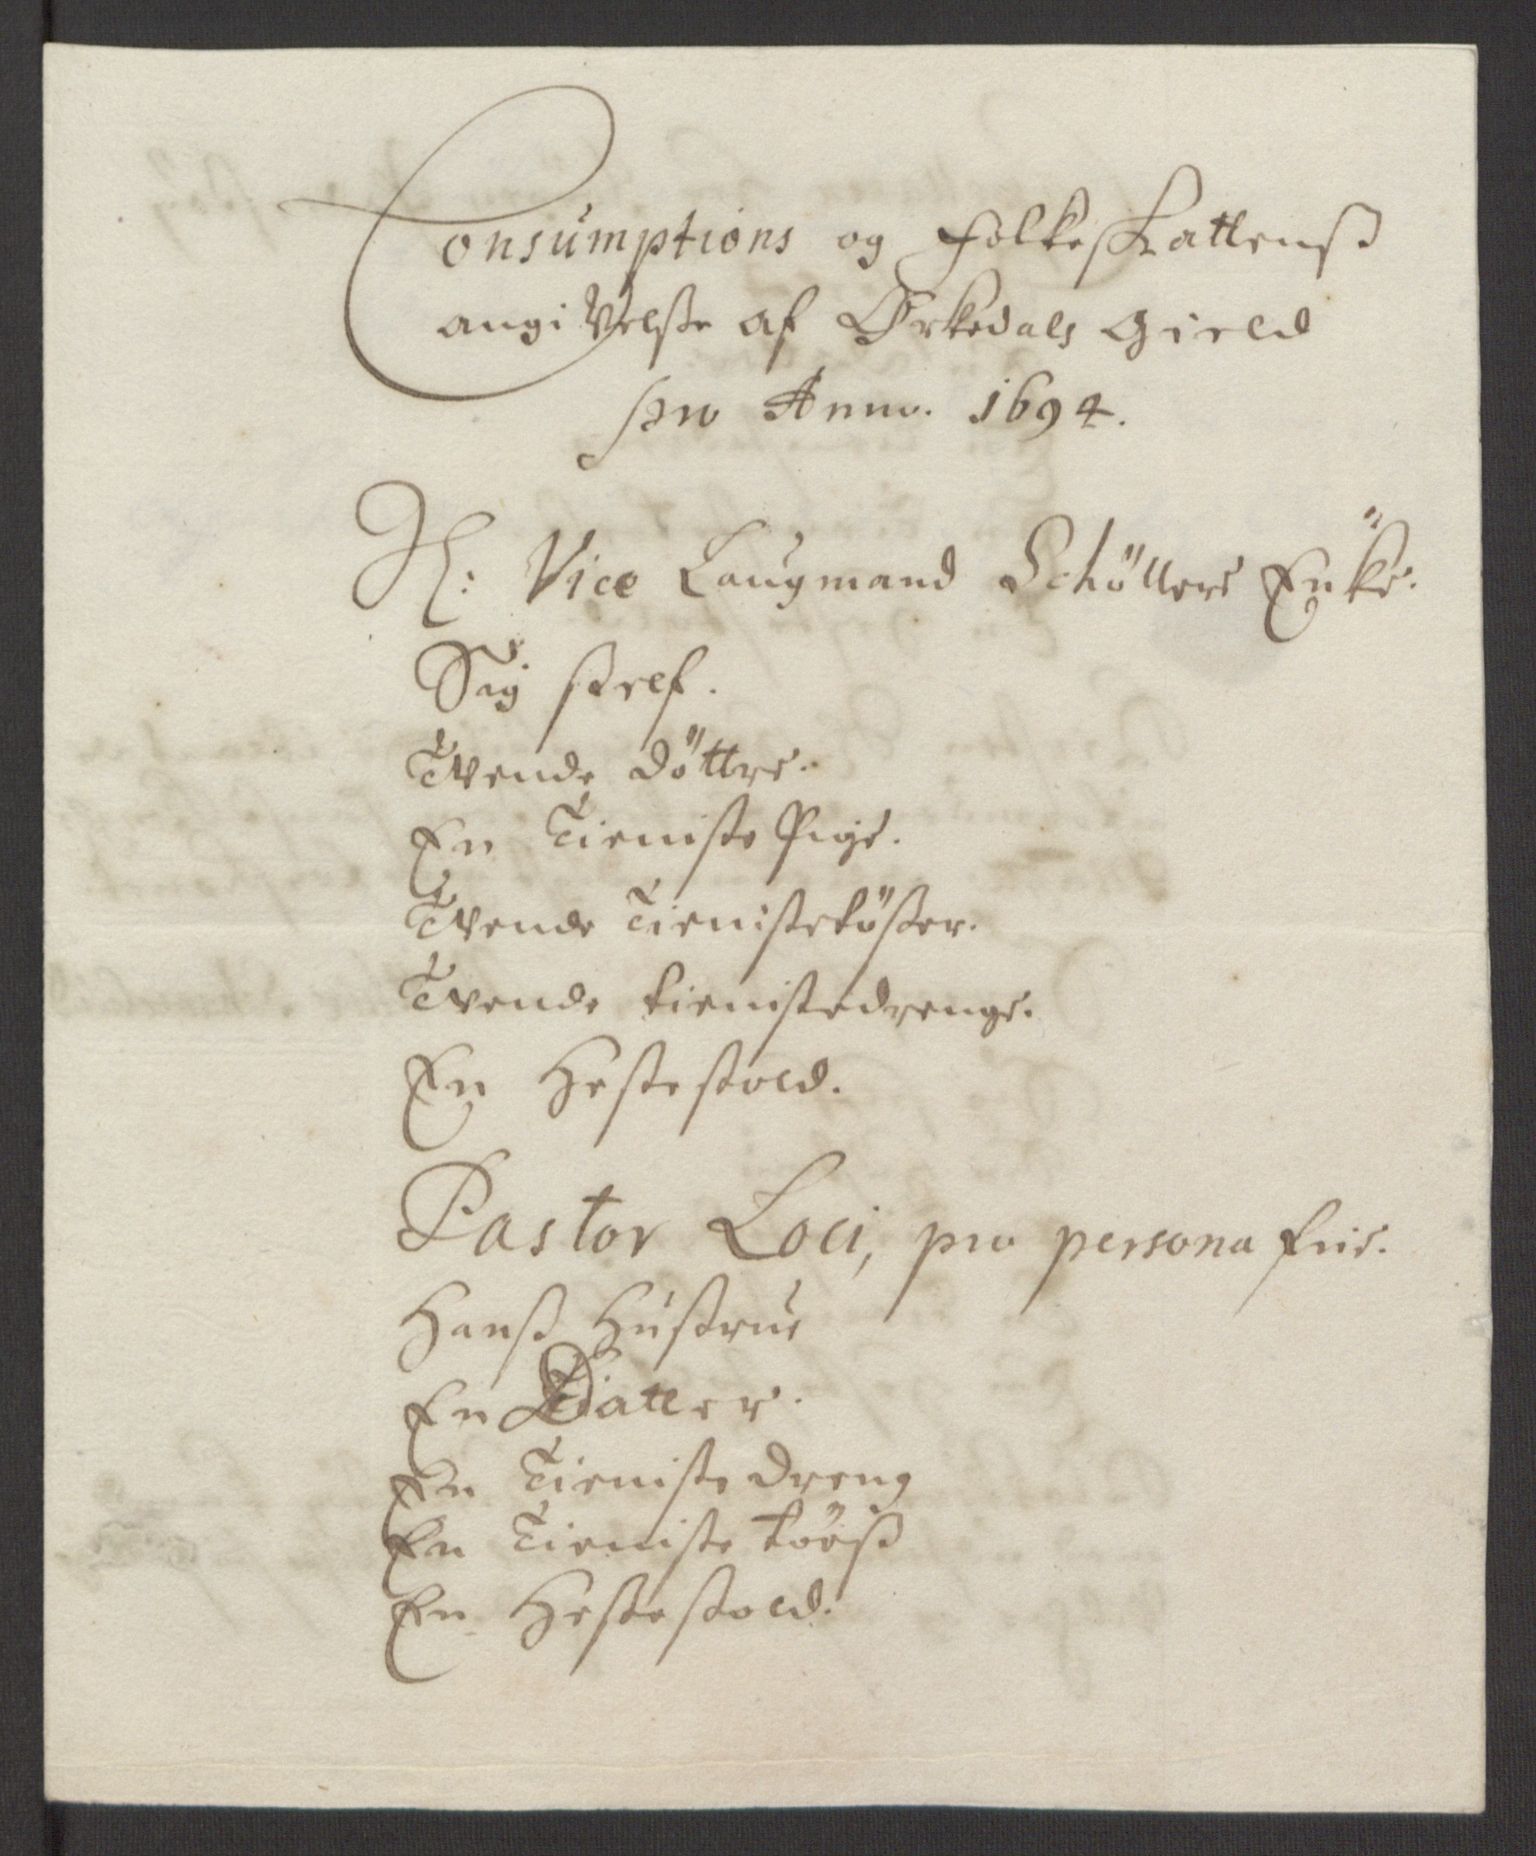 Consumptions og Folkeskattenß
angivelße af Ørkedals Gield
pro Anno. 1694.
H: Vice Laugmand Schöllers Enke.
Sig sielf.
Tvende döttre.
En Tieniste Pige.
Tvende Tienistetößer.
Tvende tienistedrenge.
En Hestestold.
Pastor Loci, pro persona frie.
Hanß Hustrue
En Datter.
En Tieniste dreng
En Tieniste töeß
En Hestestold.